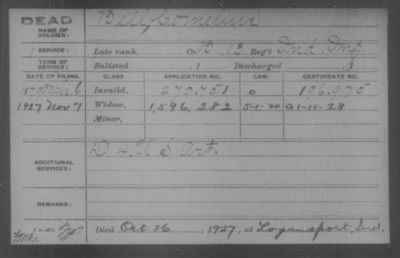 DEAD
NAME OF SOLDIER:
Bell, Cornelius
SERVICE:
Late rank, Co. B, 13 Reg't Ind. Inf.
TERM OF SERVICE:
Enlisted , 1 Discharged , 1
DATE OF FILING. CLASS. APPLICATION NO. LAW. CERTIFICATE NO.
6 Invalid, 270,751 0 196,975
1927 Nov 7 Widow, 1,596,282 5-1-20 A1-11-28
Minor,
ADDITIONAL SERVICES:
D 4 U S Art.
REMARKS:
Died Oct 26, 1927, at Logansport, Ind.